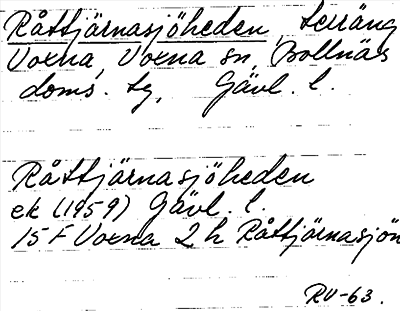 Råttjärnasjöheden, terräng
Voxna, Voxna sn, Bollnäs
doms. tg, Gävl. l.
Råttjärnasjöheden
ek (1959) Gävl. l.
15 F Voxna 2 h Råttjärnasjön
RV-63.